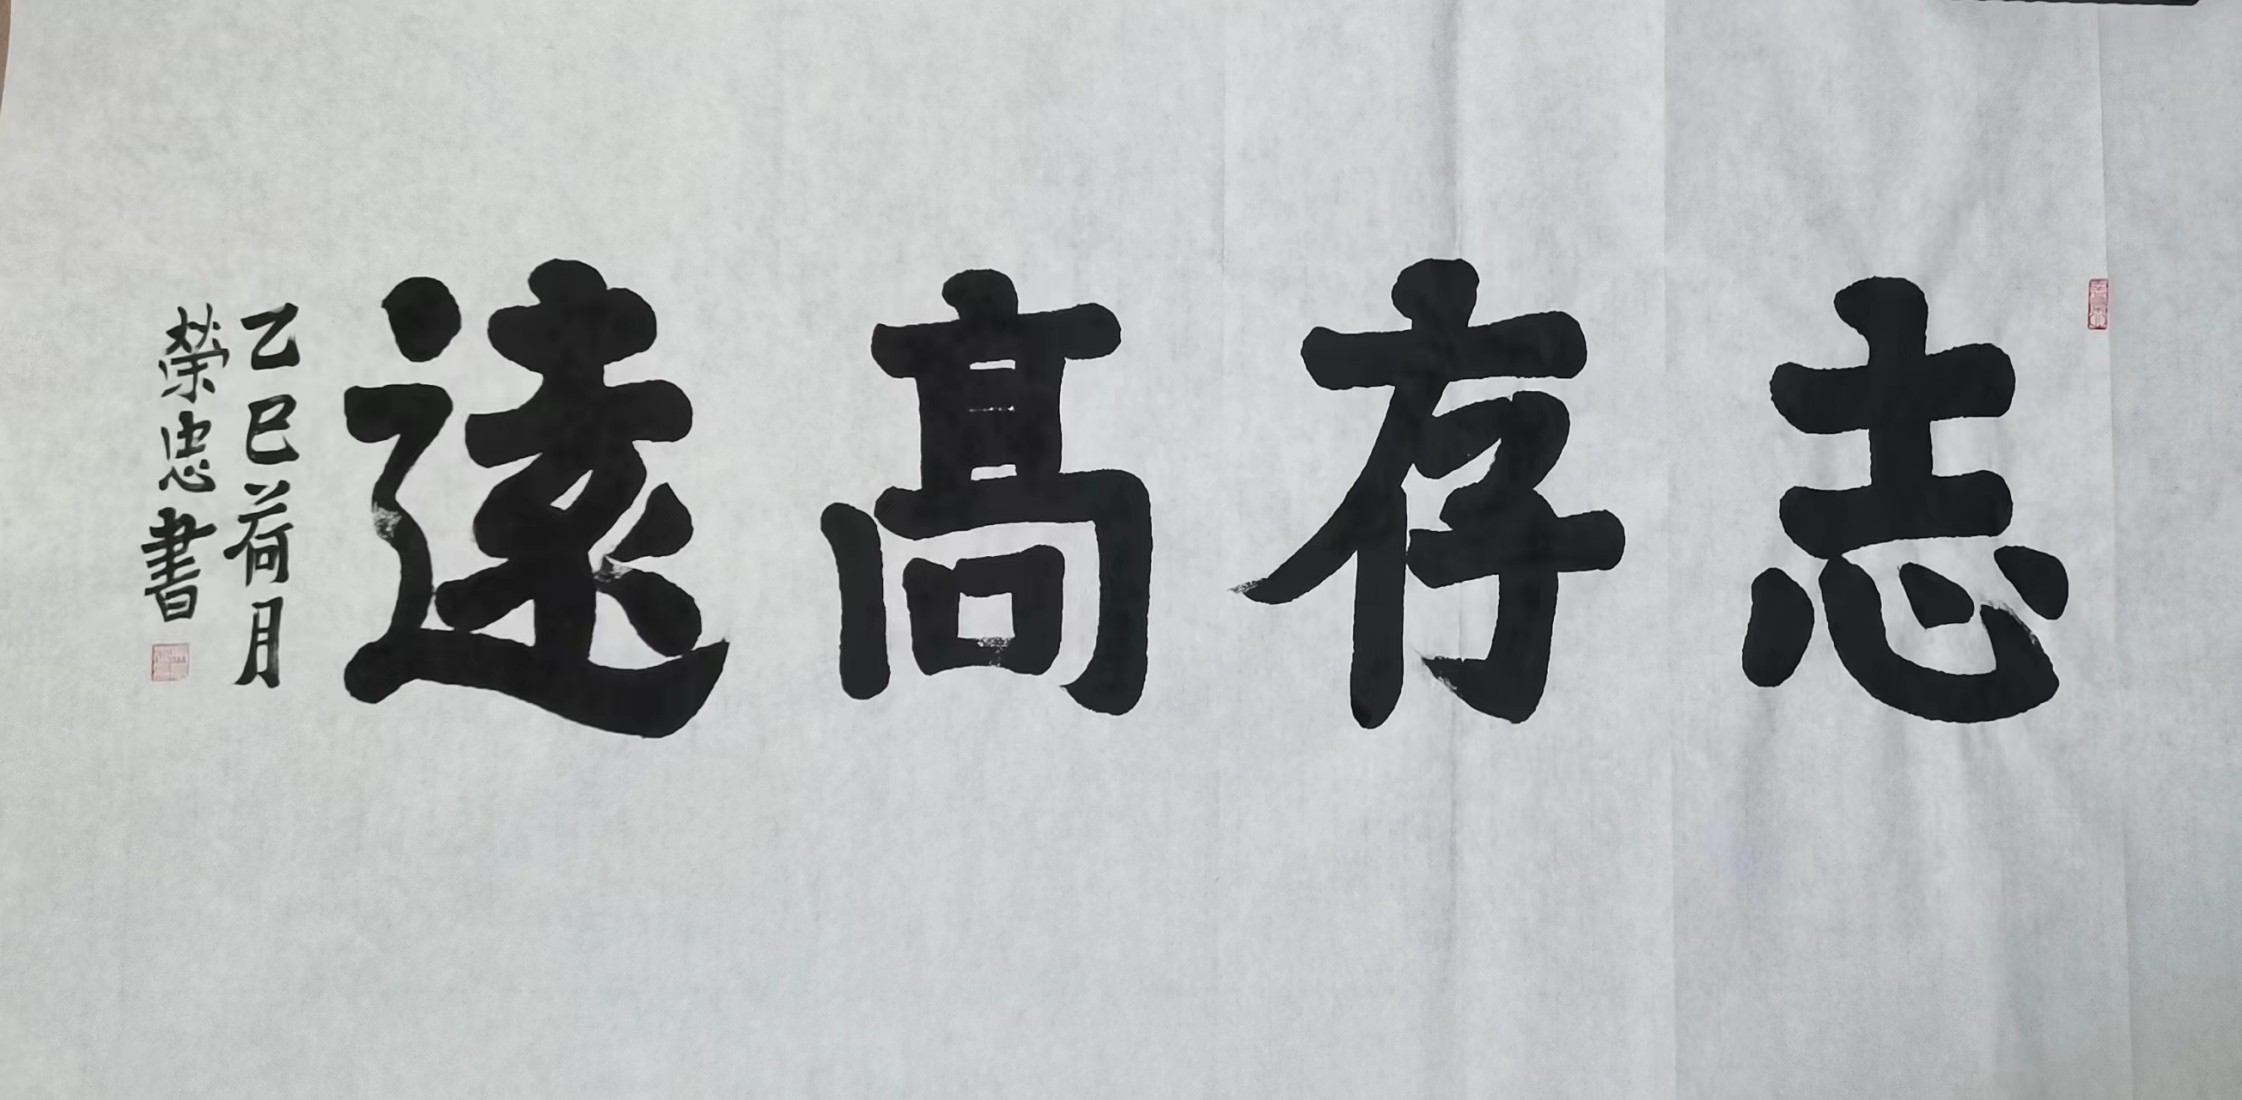 志存高遠
乙巳荷月
榮忠書